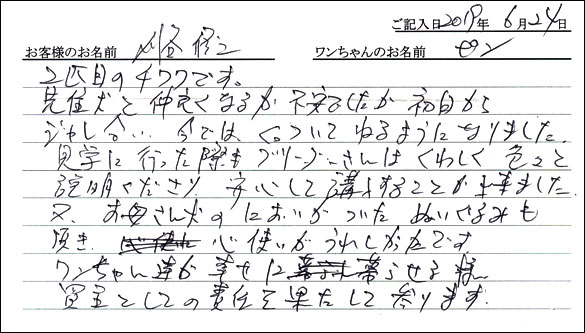 ご記入日2019年 6月24日
お客様のお名前 ワンちゃんのお名前 セン
2匹目のチワワです。
先住犬と仲良くなるか不安でしたが初日から
ジャレ合い、今では、くっついてねるようになりました。
見学に行った際もブリーダーさんはくわしく色々と
説明くださり、安心して購入することが出来ました
又、お母さん犬のにおいがついたぬいぐるみも
頂き 心使いがうれしかったです
ワンちゃん達が幸せに 暮らせる様
買主としての責任を果たして参ります。